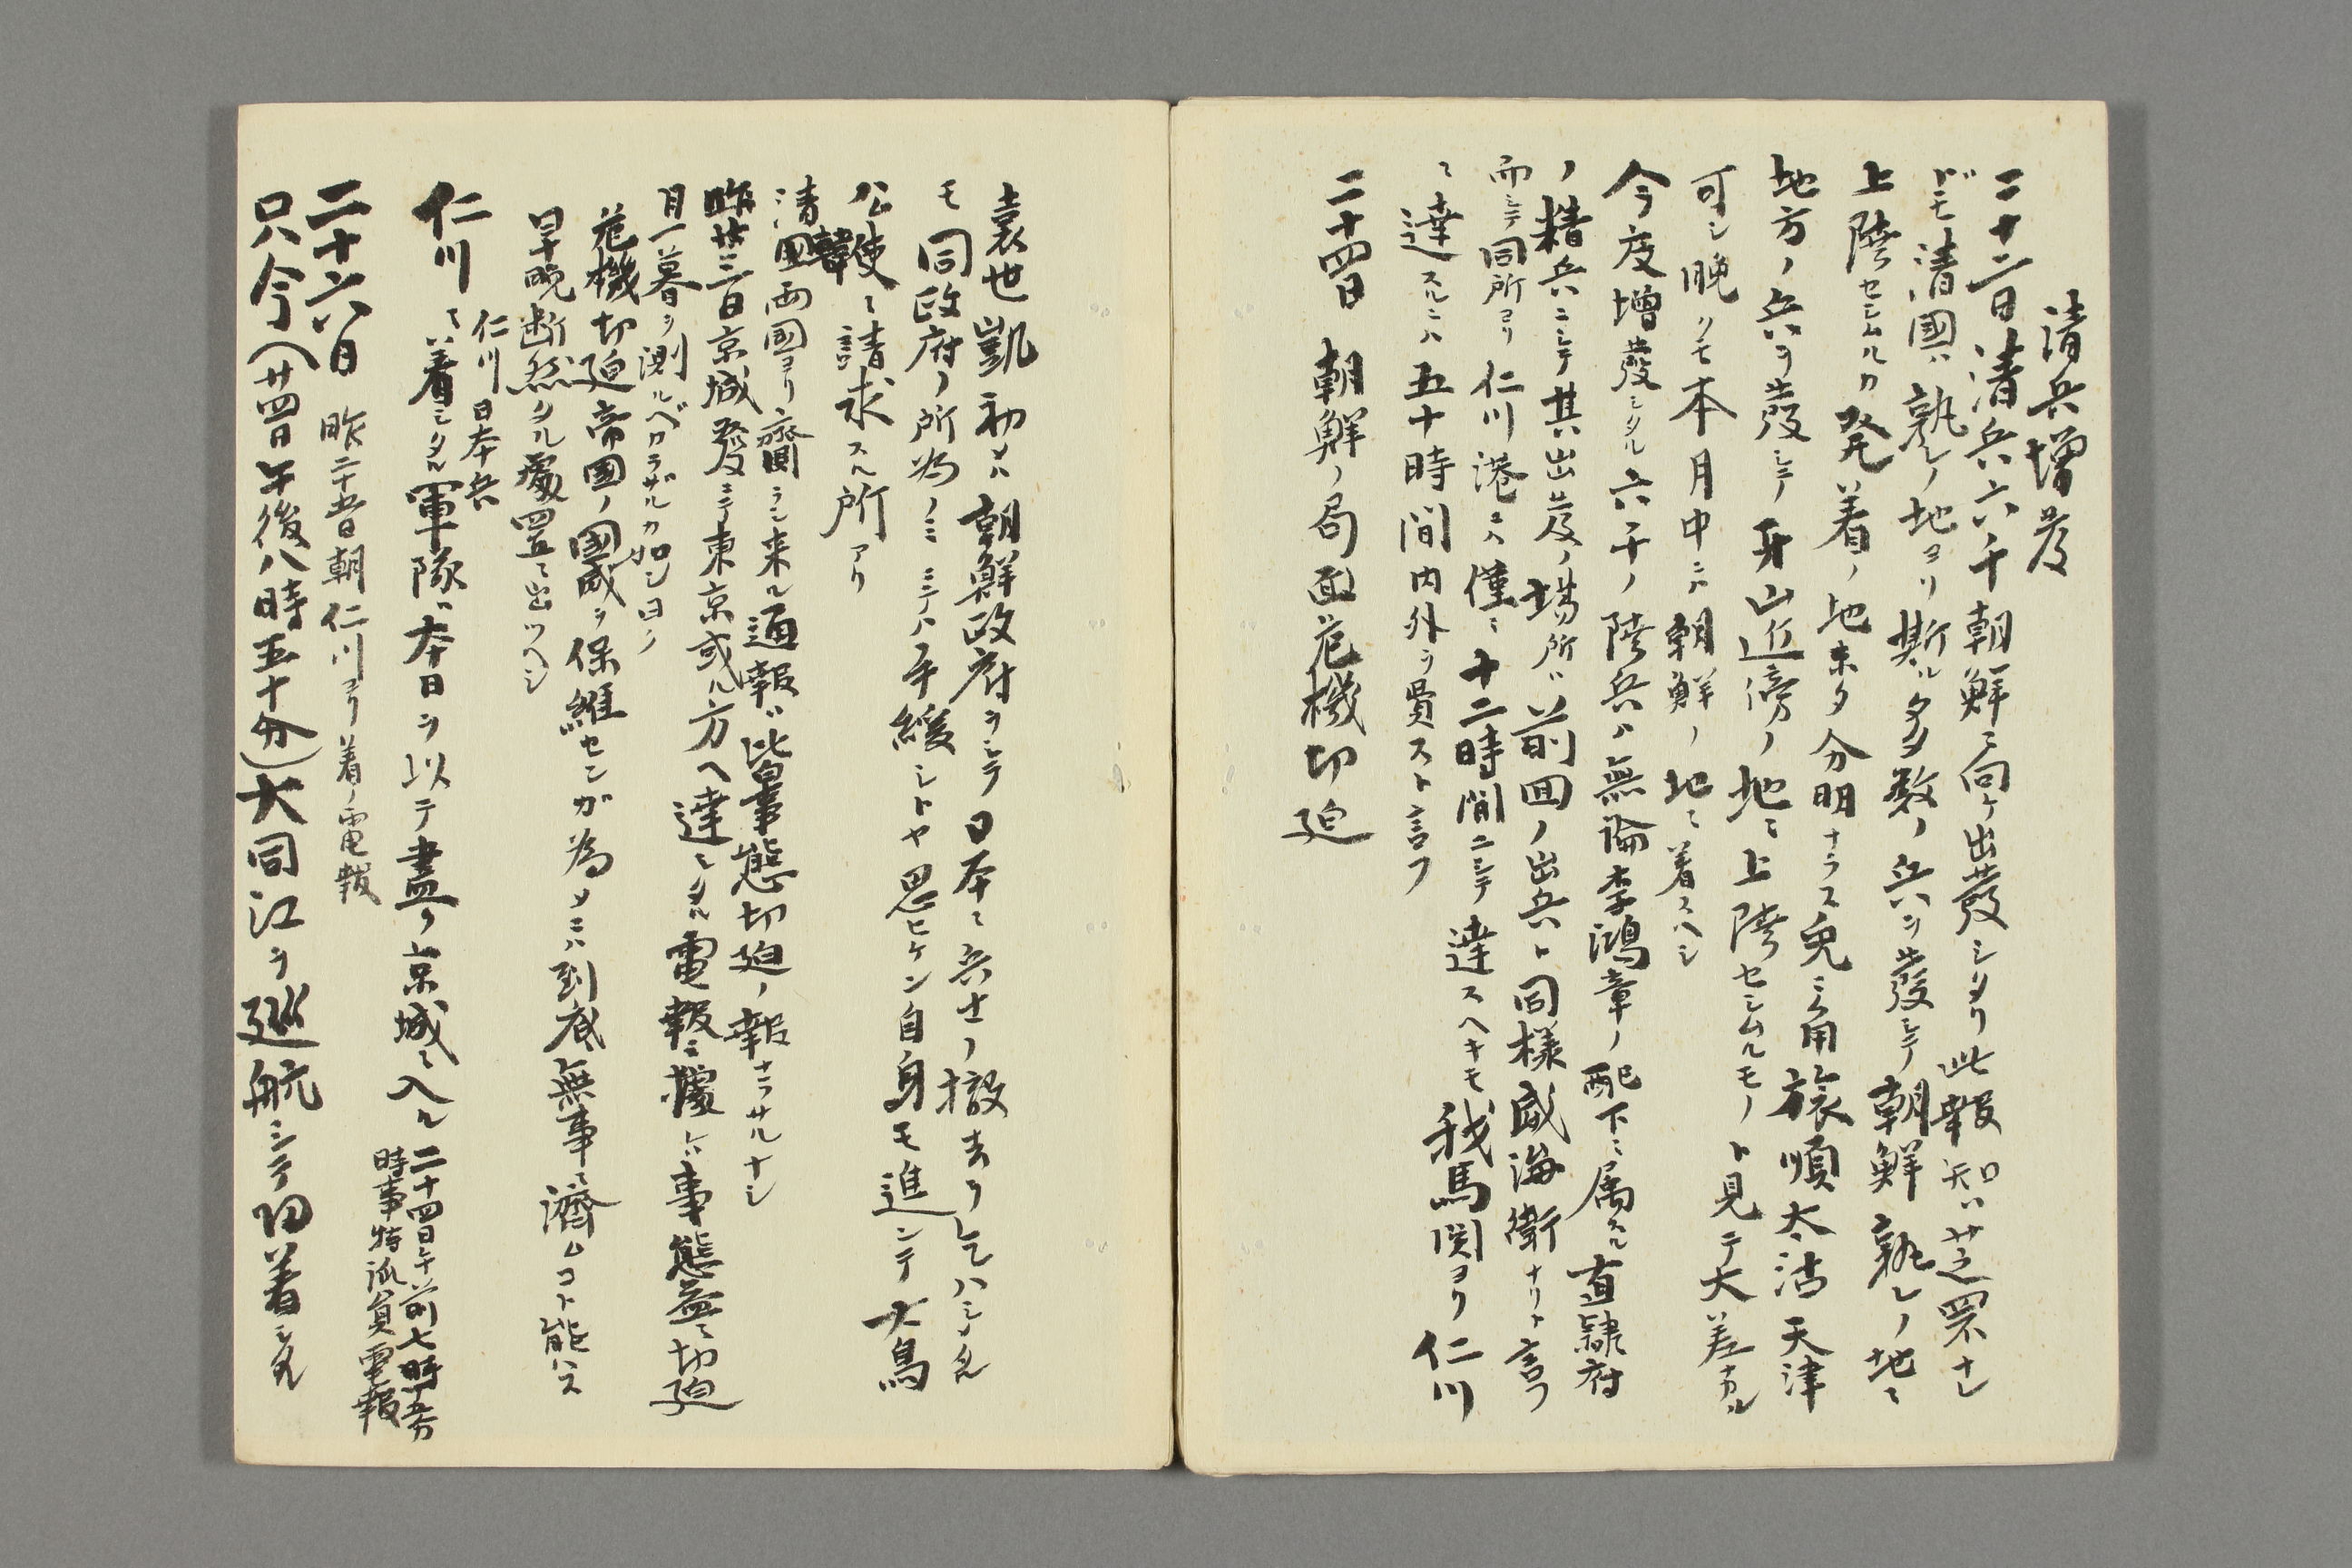 清兵増發
二十二日清兵六千朝鮮ニ向ケ出發シタリ此報知ハ芝罘ナレ
ドモ清國ハ孰レノ地ヨリ斯ル多数ノ兵ヲ發シテ朝鮮孰レノ地ニ
上陸セシムルカ発着ノ地未タ分明ナラス兎ニ角旅順太沽天津
地方ノ兵ヲ發シテ牙山近傍ノ地ニ上陸セシムルモノト見テ大差ナカル
可シ晩クモ本月中ニハ朝鮮ノ地ニ着スヘシ
今度増發シタル六千ノ陸兵ハ無論李鴻章ノ配下ニ属スル直隷府
ノ精兵ニシテ其出發ノ場所ハ前回ノ出兵ト同様威海衛ナリト言フ
而シテ同所ヨリ仁川港ヘハ僅ニ十二時間ニシテ達スヘキモ我馬関ヨリ仁川
ニ達スルニハ五十時間内外ヲ費スト言フ
二十四日　朝鮮ノ局面危機切迫
袁世凱初メハ朝鮮政府ヲシテ日本ニ兵士ノ撤去ヲ乞ハシメタル
モ同政府ノ所為ノミニテハ手緩シトヤ思ヒケン自身モ進ンテ大鳥
公使ニ請求スル所アリ
清韓両國ヨリ齎ラシ来ル通報ハ皆事態切迫ノ報ナラサルナシ
昨廿三日京城發ニテ東京或ル方ヘ達シタル電報ニ據レハ事態益々切迫
月一暮ヲ測ルベカラザルカ如シ曰ク
危機切迫帝国ノ國威ヲ保維センガ為メニハ到底無事ニ濟ムコト能ハス
早晩断然タル處置ニ出ツヘシ
仁川日本兵
仁川ニ着シタル軍隊ハ本日ヲ以テ盡ク京城ニ入ル　二十四日午前七時五分
時事特派員電報
二十六日　昨二十五日朝仁川ヨリ着ノ電報
只今(廿四日午後八時五十分)大同江ヲ巡航シテ归着シタル